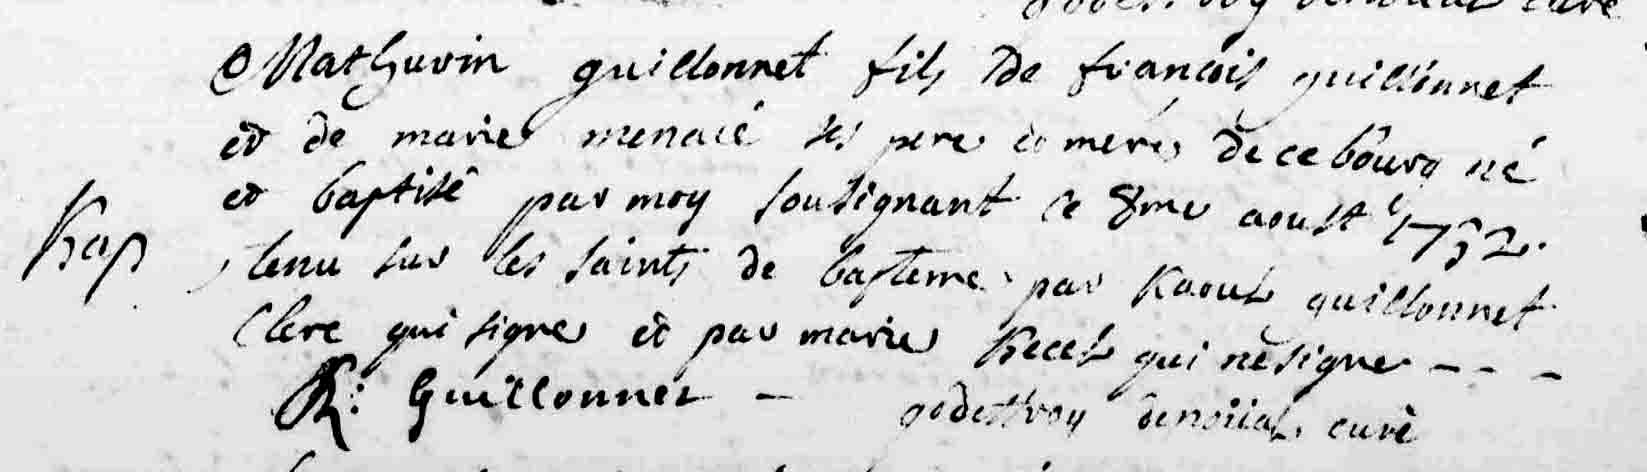 curé
Mathurin guillonnet fils De francois guillonnet
et de marie menacé ses pere et mere de ce bourg né
et baptisé par moy sousignant ce 8me aoust 1732.
Bap
tenu sur les saints de bapteme par Raoul guillonnet
Clerc qui signe et par marie qui ne signe - - -
R: Guillonnet - godeffroy curé